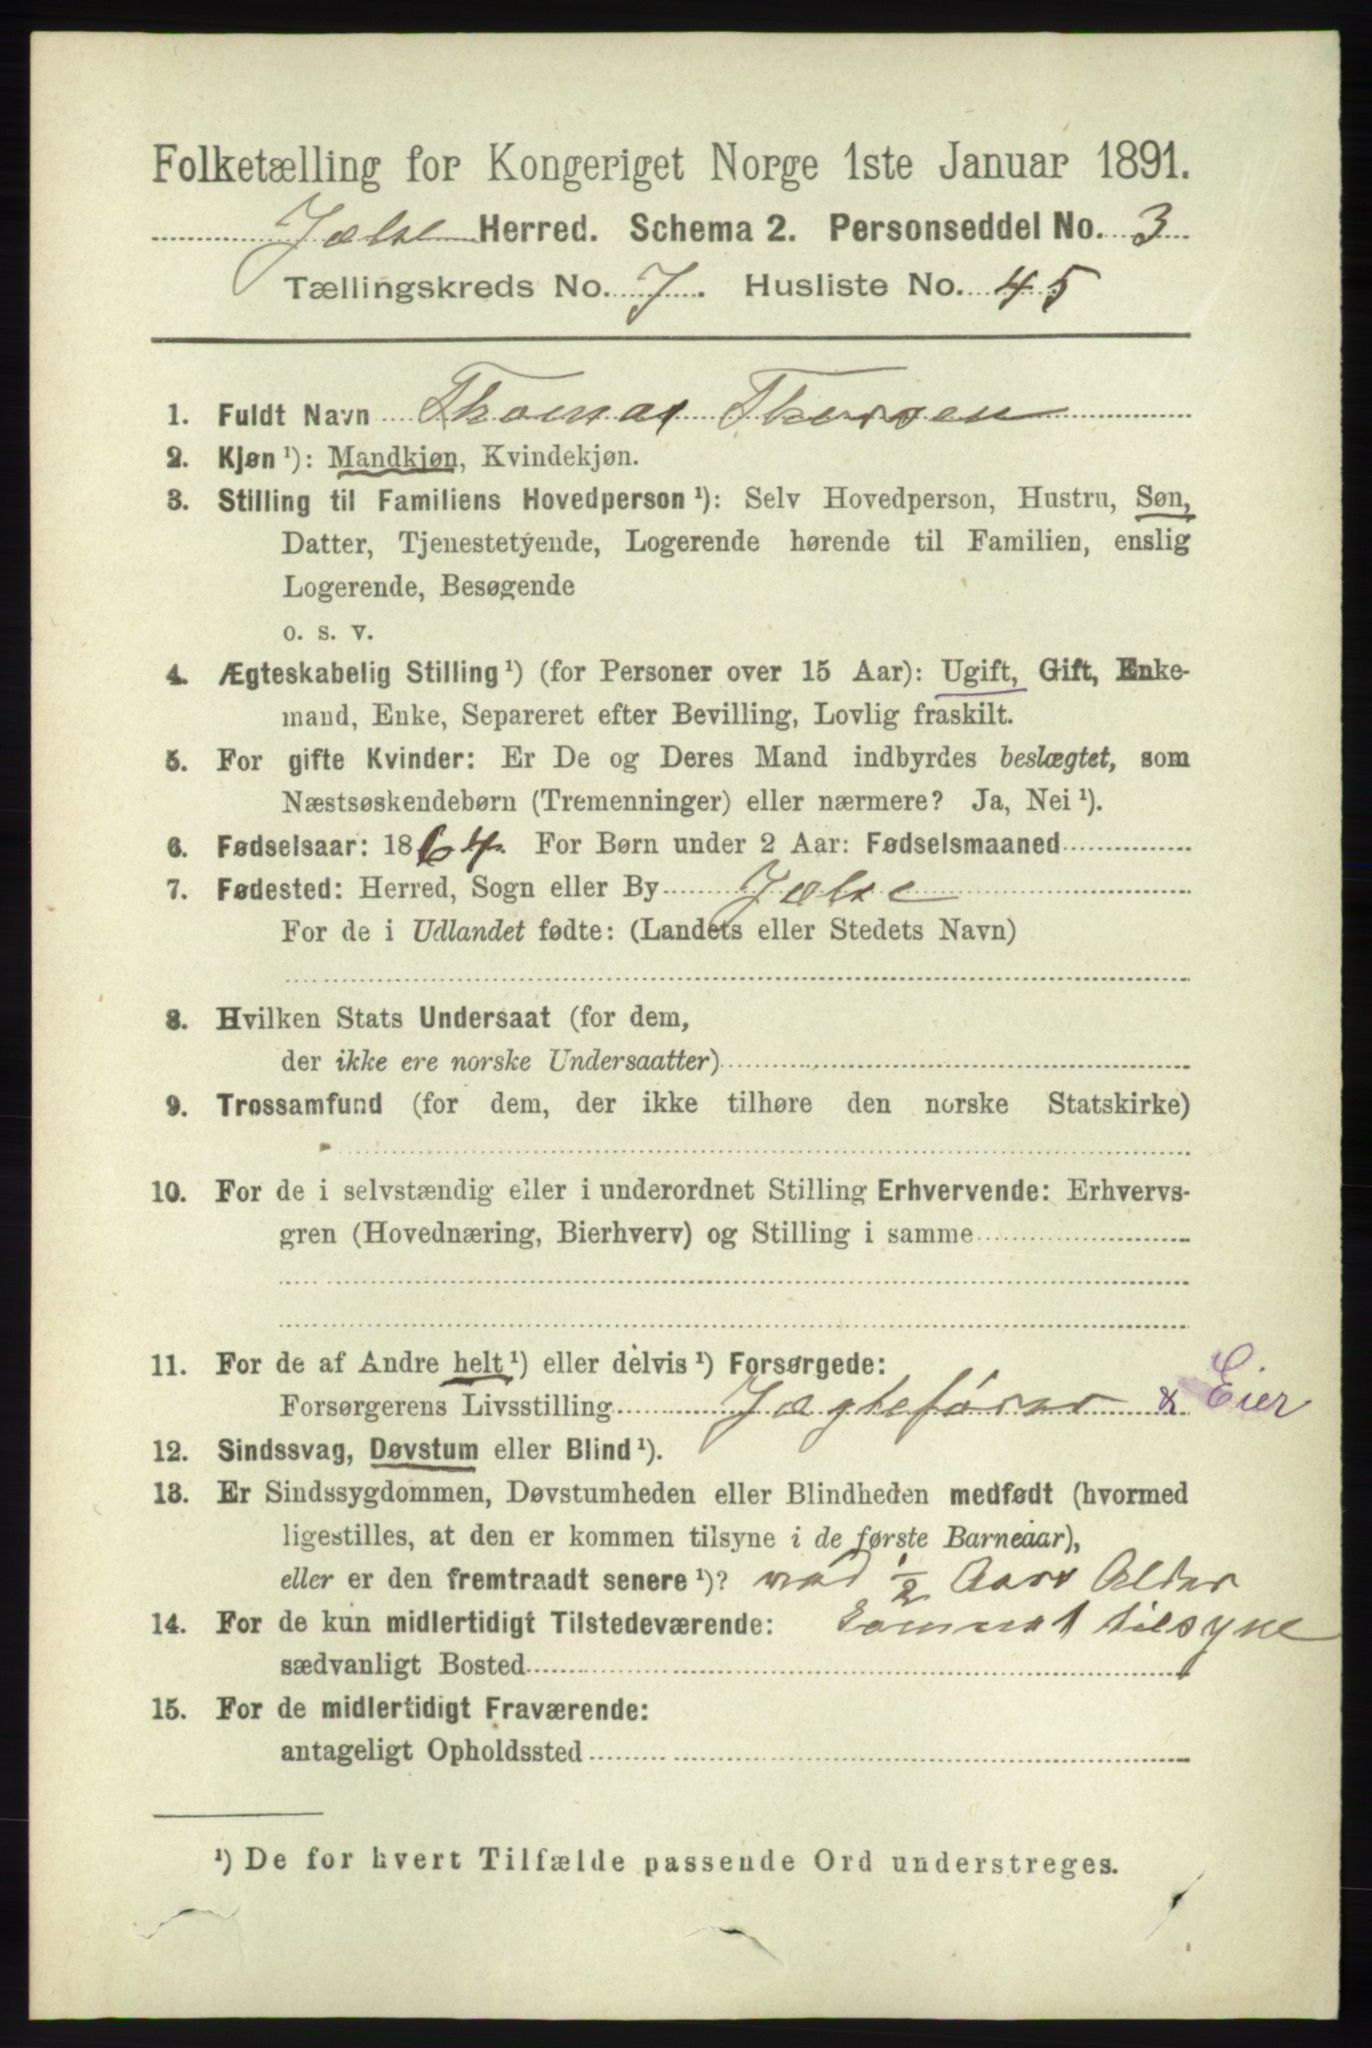 Folketælling for Kongeriget Norge 1ste Januar 1891.
Jælse Herred. Schema 2. Personseddel No. 3
Tællingskreds No. 7. Husliste No. 45
1. Fuldt Navn Thomas Thorsen
2. Kjøn ¹): Mandkjøn, Kvindekjøn.
3. Stilling til Familiens Hovedperson ¹): Selv Hovedperson, Hustru, Søn,
Datter, Tjenestetyende, Logerende hørende til Familien, enslig
Logerende, Besøgende
o. s. v.
4. Ægteskabelig Stilling ¹) (for Personer over 15 Aar): Ugift, Gift, Enke-
mand, Enke, Separeret efter Bevilling, Lovlig fraskilt.
5. For gifte Kvinder: Er De og Deres Mand indbyrdes beslægtet, som
Næstsøskendebørn (Tremenninger) eller nærmere? Ja, Nei ¹).
6. Fødselsaar: 1864. For Børn under 2 Aar: Fødselsmaaned
7. Fødested: Herred, Sogn eller By Jælse
For de i Udlandet fødte: (Landets eller Stedets Navn)
8. Hvilken Stats Undersaat (for dem,
der ikke ere norske Undersaatter)
9. Trossamfund (for dem, der ikke tilhøre den norske Statskirke)
10. For de i selvstændig eller i underordnet Stilling Erhvervende: Erhvervs-
gren (Hovednæring, Bierhverv) og Stilling i samme
11. For de af Andre helt ¹) eller delvis ¹) Forsørgede:
Forsørgerens Livsstilling Jægtefører & Eier
12. Sindssvag, Døvstum eller Blind ¹).
13. Er Sindssygdommen, Døvstumheden eller Blindheden medfødt (hvormed
ligestilles, at den er kommen tilsyne i de første Barneaar),
eller er den fremtraadt senere ¹)? ved ½ Aars Alder
14. For de kun midlertidigt Tilstedeværende: kommet tilsyne
sædvanligt Bosted
15. For de midlertidigt Fraværende:
antageligt Opholdssted
¹) De for hvert Tilfælde passende Ord understreges.